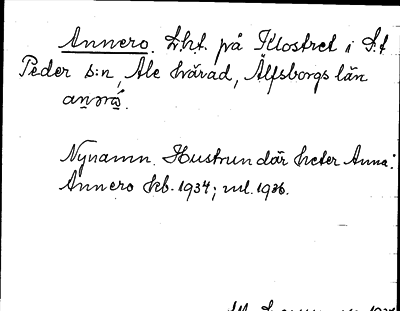 Annero. Lht. på Klostret i S:t
Peder s:n, Ale härad, Älfsborgs län
Nynamn. Hustrun där heter Anna:
Annero kb. 1934; ml. 1936.